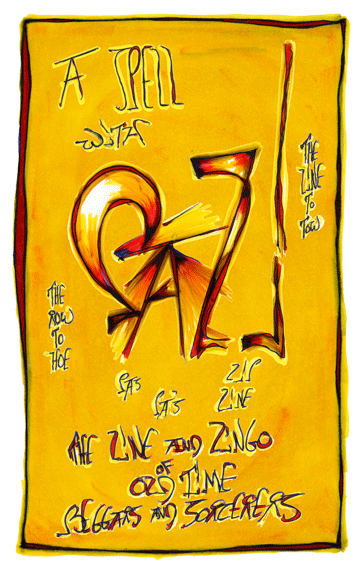 A SPELL
WITH
PAZ!
THE
LINE
TO
TOW
THE
ROW
TO
HOE
ZIP
LINE
THE LINE AND ZINGO
OF
OLD TIME
BEGGARS AND SORCERERS